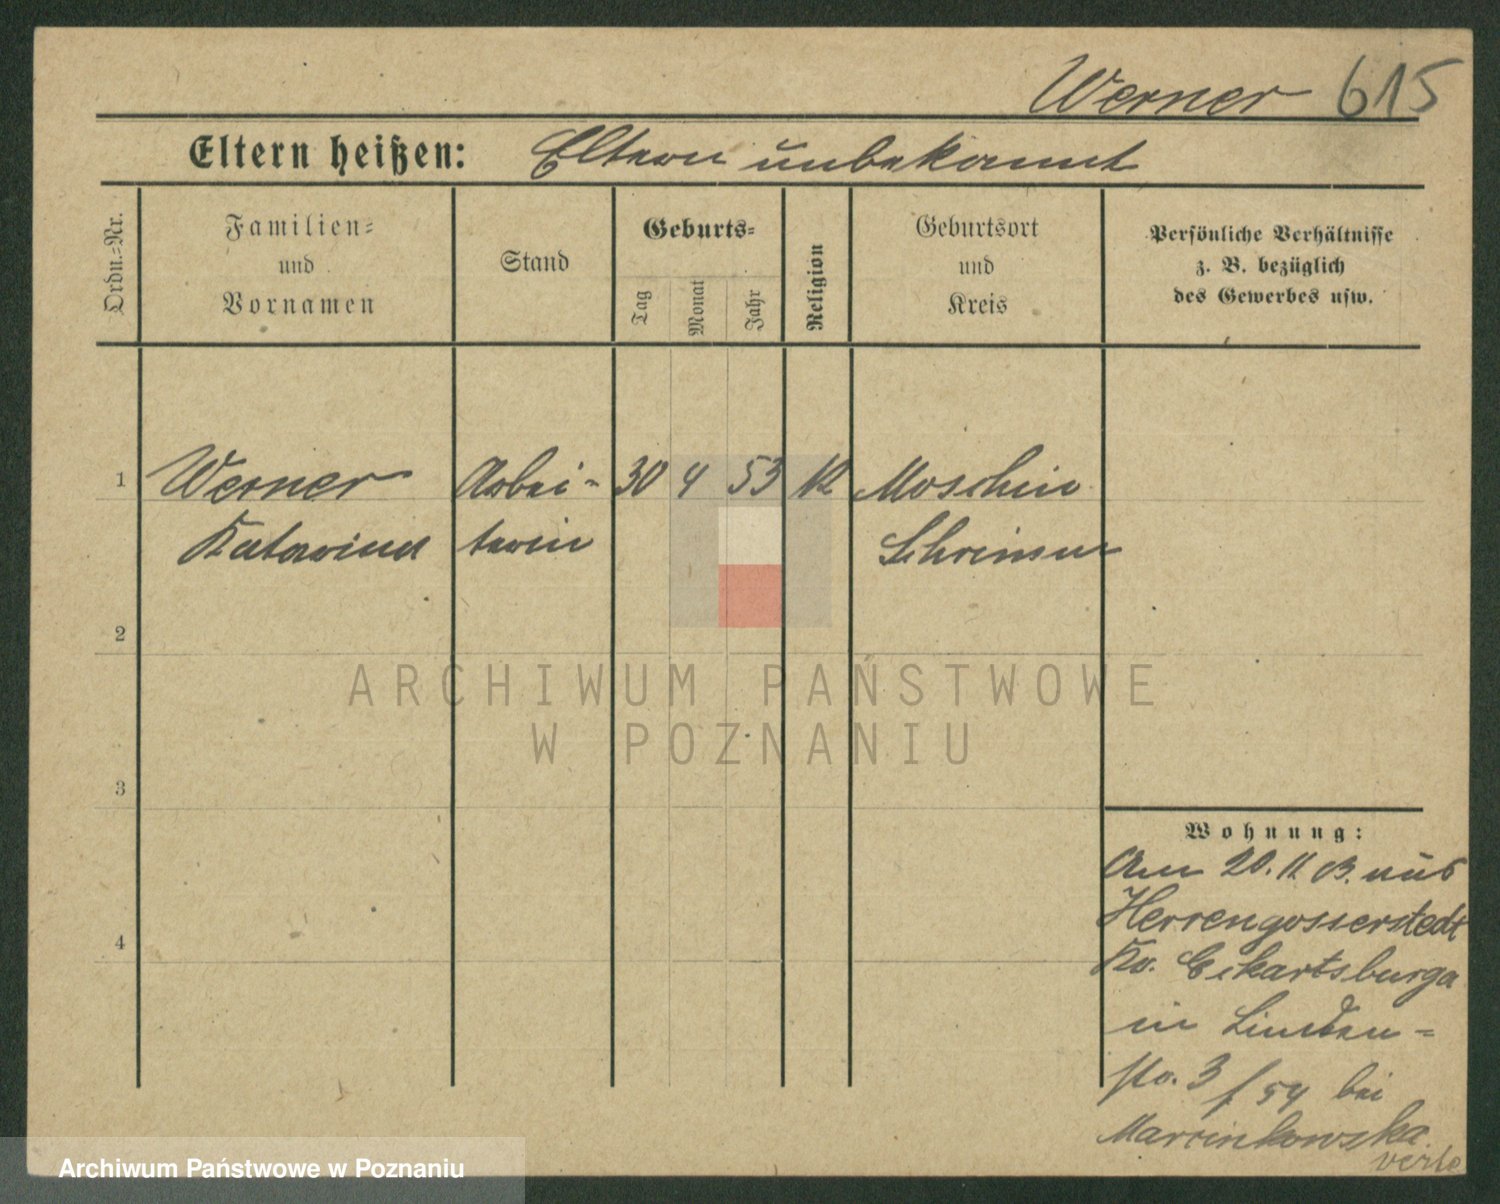 Werner 615
Eltern heißen: Eltern unbekannt
Ordn.-Nr.
Familien-
und
Vornamen
Stand
Geburts-
Tag
Monat
Jahr
Religion
Geburtsort
und
Kreis
Persönliche Verhältnisse
z. B. bezüglich
des Gewerbes usw.
1 Werner Arbei- 30 4 53 k Moschin
Katarina terin Schrimm
2
3
4
Wohnung:
Am 20. 11 03. aus
Herrengosserstedt
Kr. Eckartsburga
in Linden-
str. 3 / 54 bei
Marcinkowska
ARCHIWUM PAŃSTWOWE
W POZNANIU
Archiwum Państwowe w Poznaniu